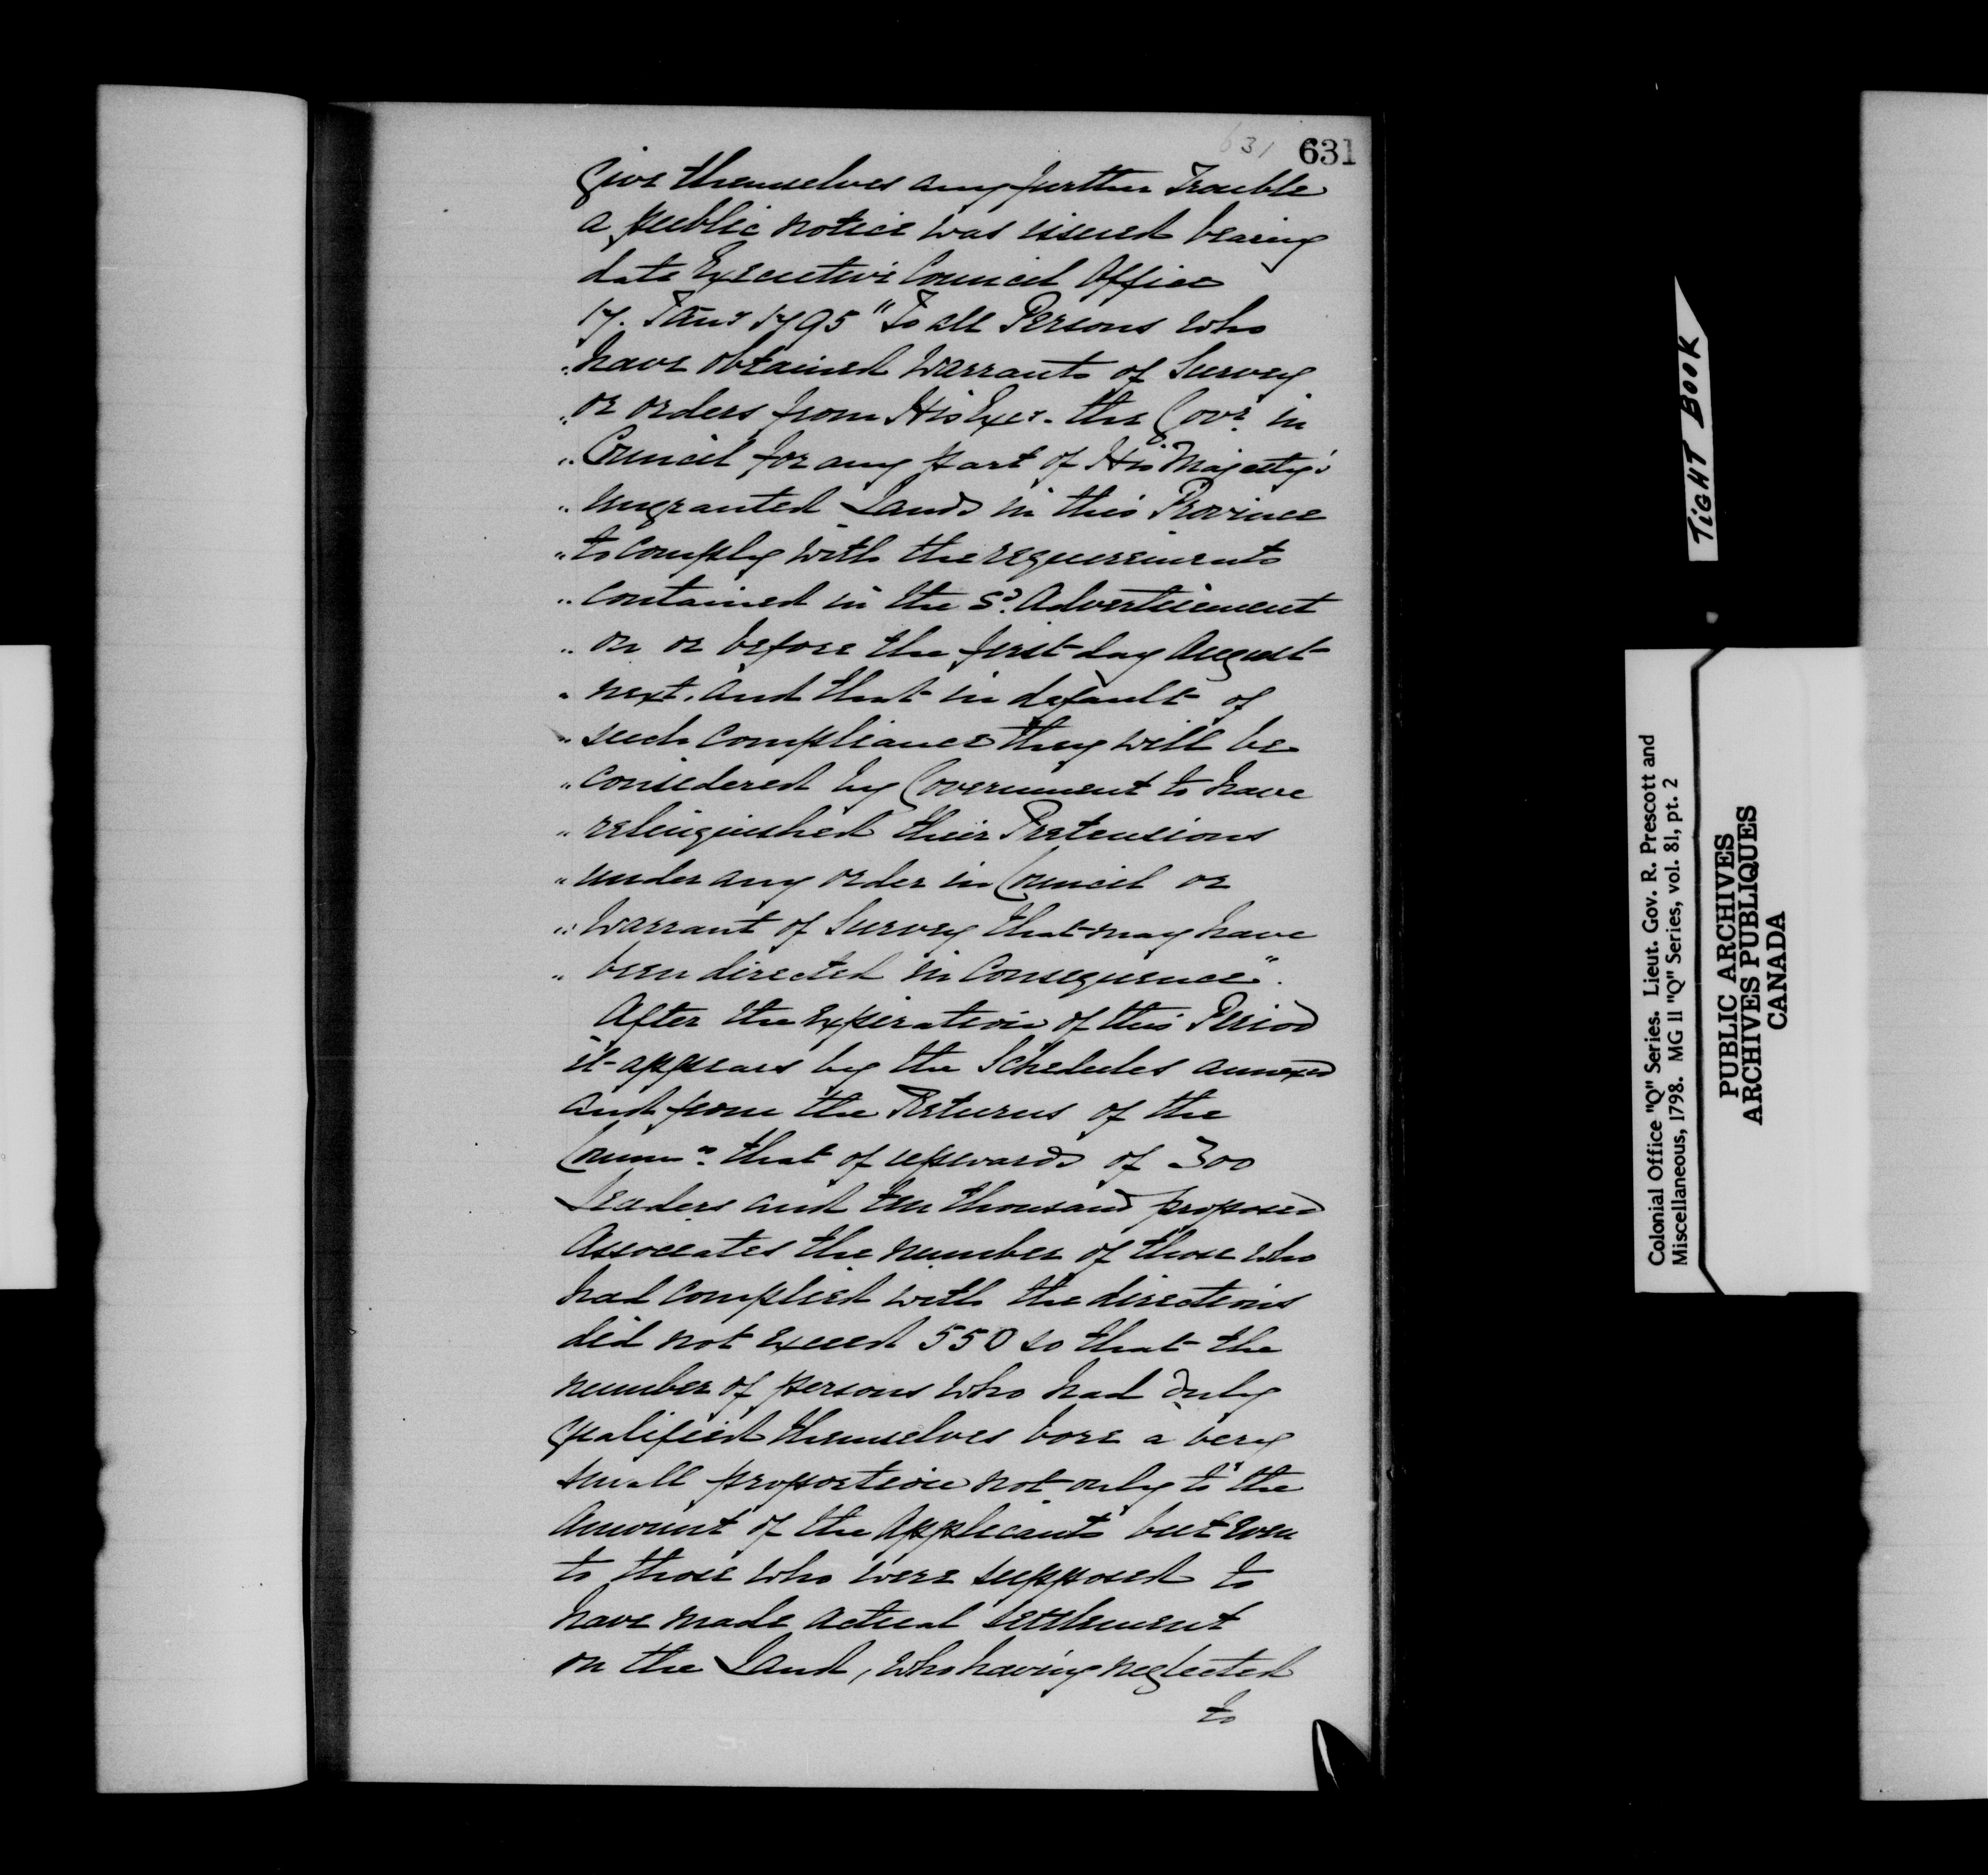 631 631
give themselves any further Trouble
a public notice was issued bearing
date Executive Council Office
17. Jany 1795 "To all Persons who
"have obtained Warrants of Survey
"or orders from His Excy. the Govr. in
"Council for any part of His Majesty's
"ungranted Lands in this Province
"to comply with the requirements
"contained in the Sd. Advertisement
"on or before the first day August
"next. and that in default of
"such compliance they will be
"considered by Government to have
"relinquished their Pretensions
"under any order in Council or
"Warrant of Survey that may have
"been directed in Consequence".
After the Expiration of this Period
it appears by the Schedules annexed
and from the Returns of the
Commrs. that of upwards of 300
Leaders and ten thousand proposed
Associates the number of those who
had complied with the directions
did not exceed 550 so that the
number of persons who had duly
qualified themselves bore a very
small proportion not only to the
amount of the Applicants but even
to those who were supposed to
have made actual Settlement
on the Land, who having neglected
to
TIGHT BOOK
Colonial Office "Q" Series. Lieut. Gov. R. Prescott and
Miscellaneous, 1798. MG 11 "Q" Series, vol. 81, pt. 2
PUBLIC ARCHIVES
ARCHIVES PUBLIQUES
CANADA